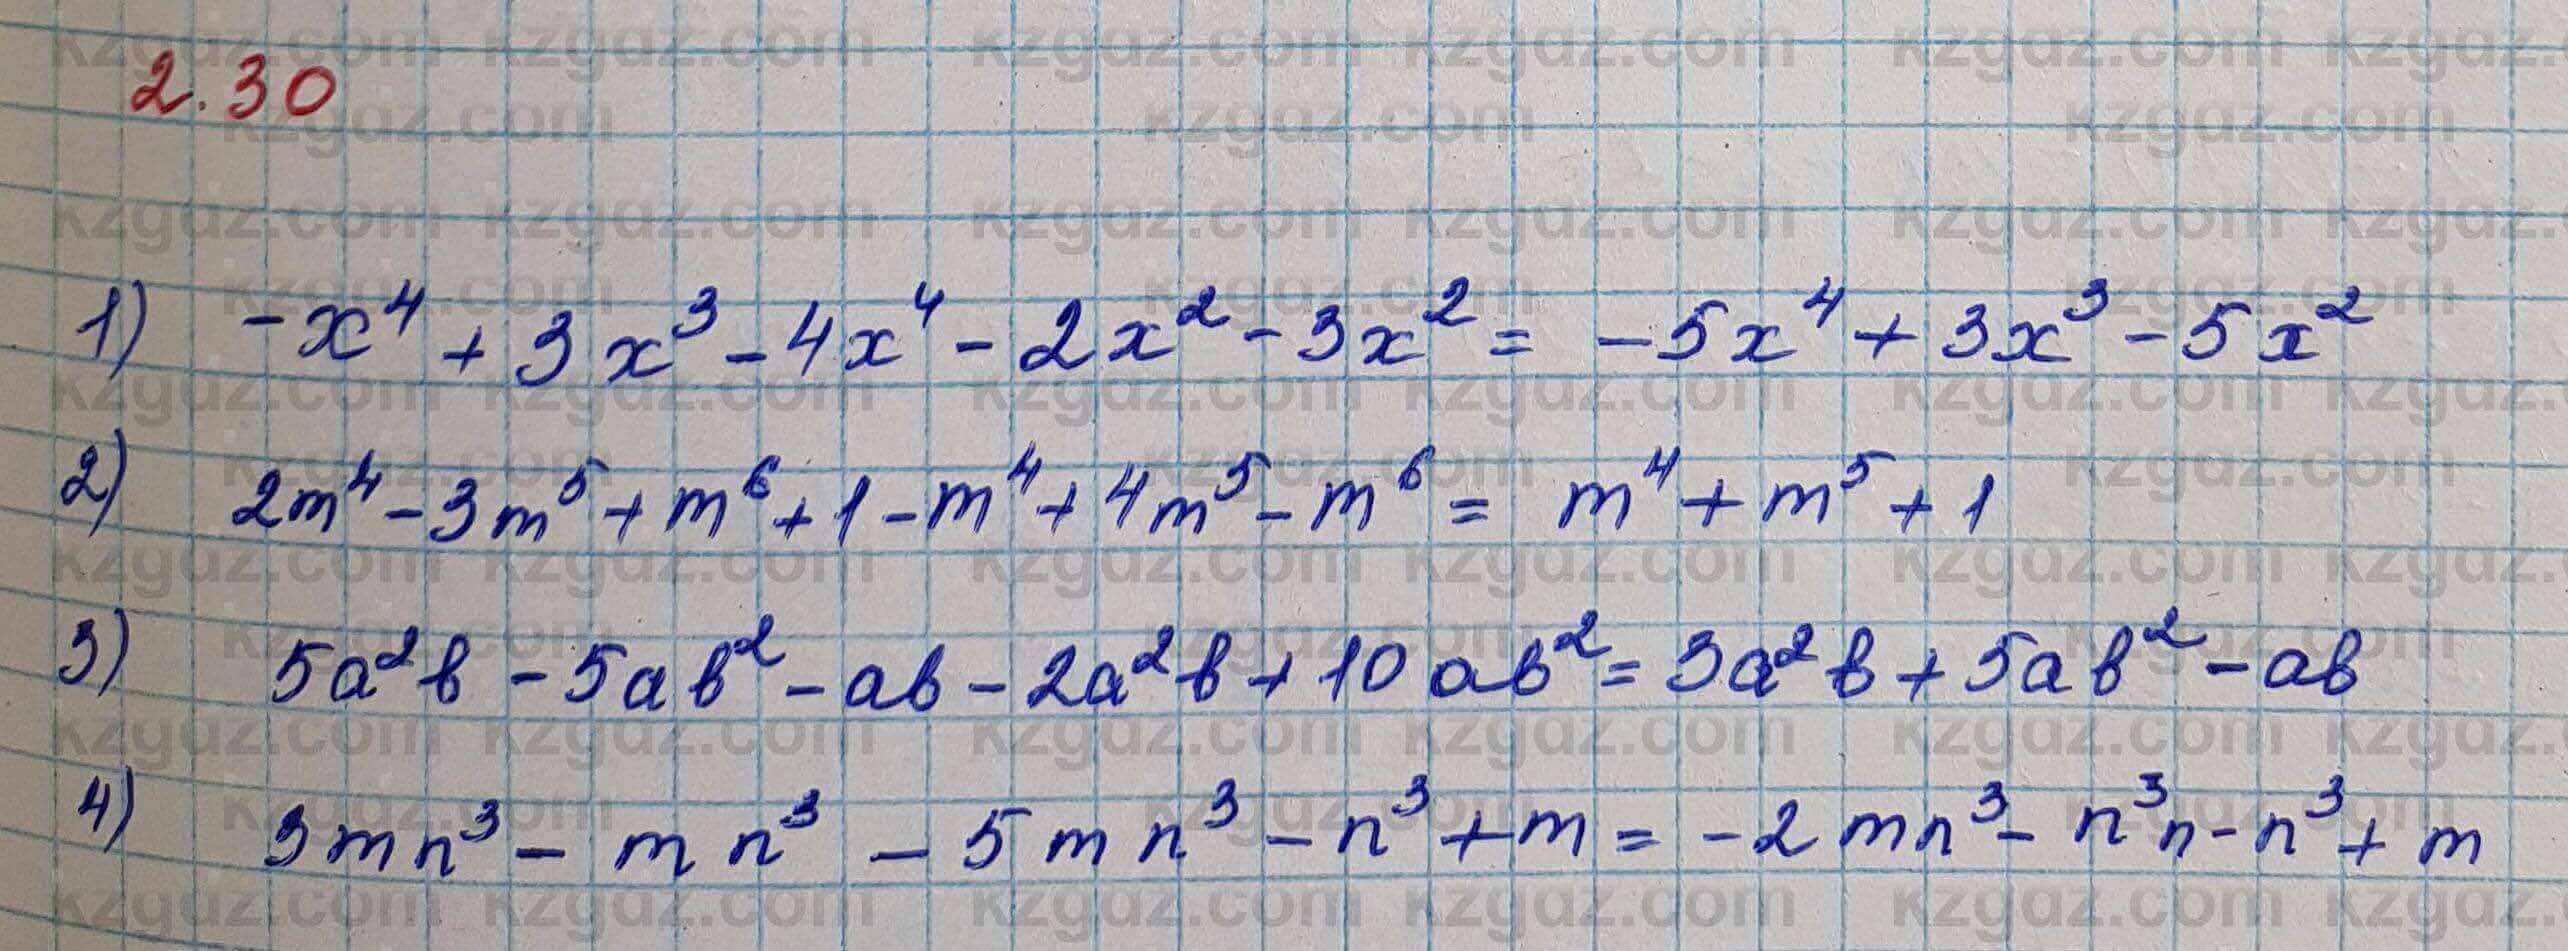 2.30
1) -x⁴ + 3x³ - 4x⁴ - 2x² - 3x² = -5x⁴ + 3x³ - 5x²
2) 2m⁴ - 3m⁵ + m⁶ + 1 - m⁴ + 4m⁵ - m⁶ = m⁴ + m⁵ + 1
3) 5a²b - 5ab² - ab - 2a²b + 10ab² = 3a²b + 5ab² - ab
4) 3mn³ - mn³ - 5mn³ - n³ + m = -2mn³ - n³n - n³ + m
kzgdz.com